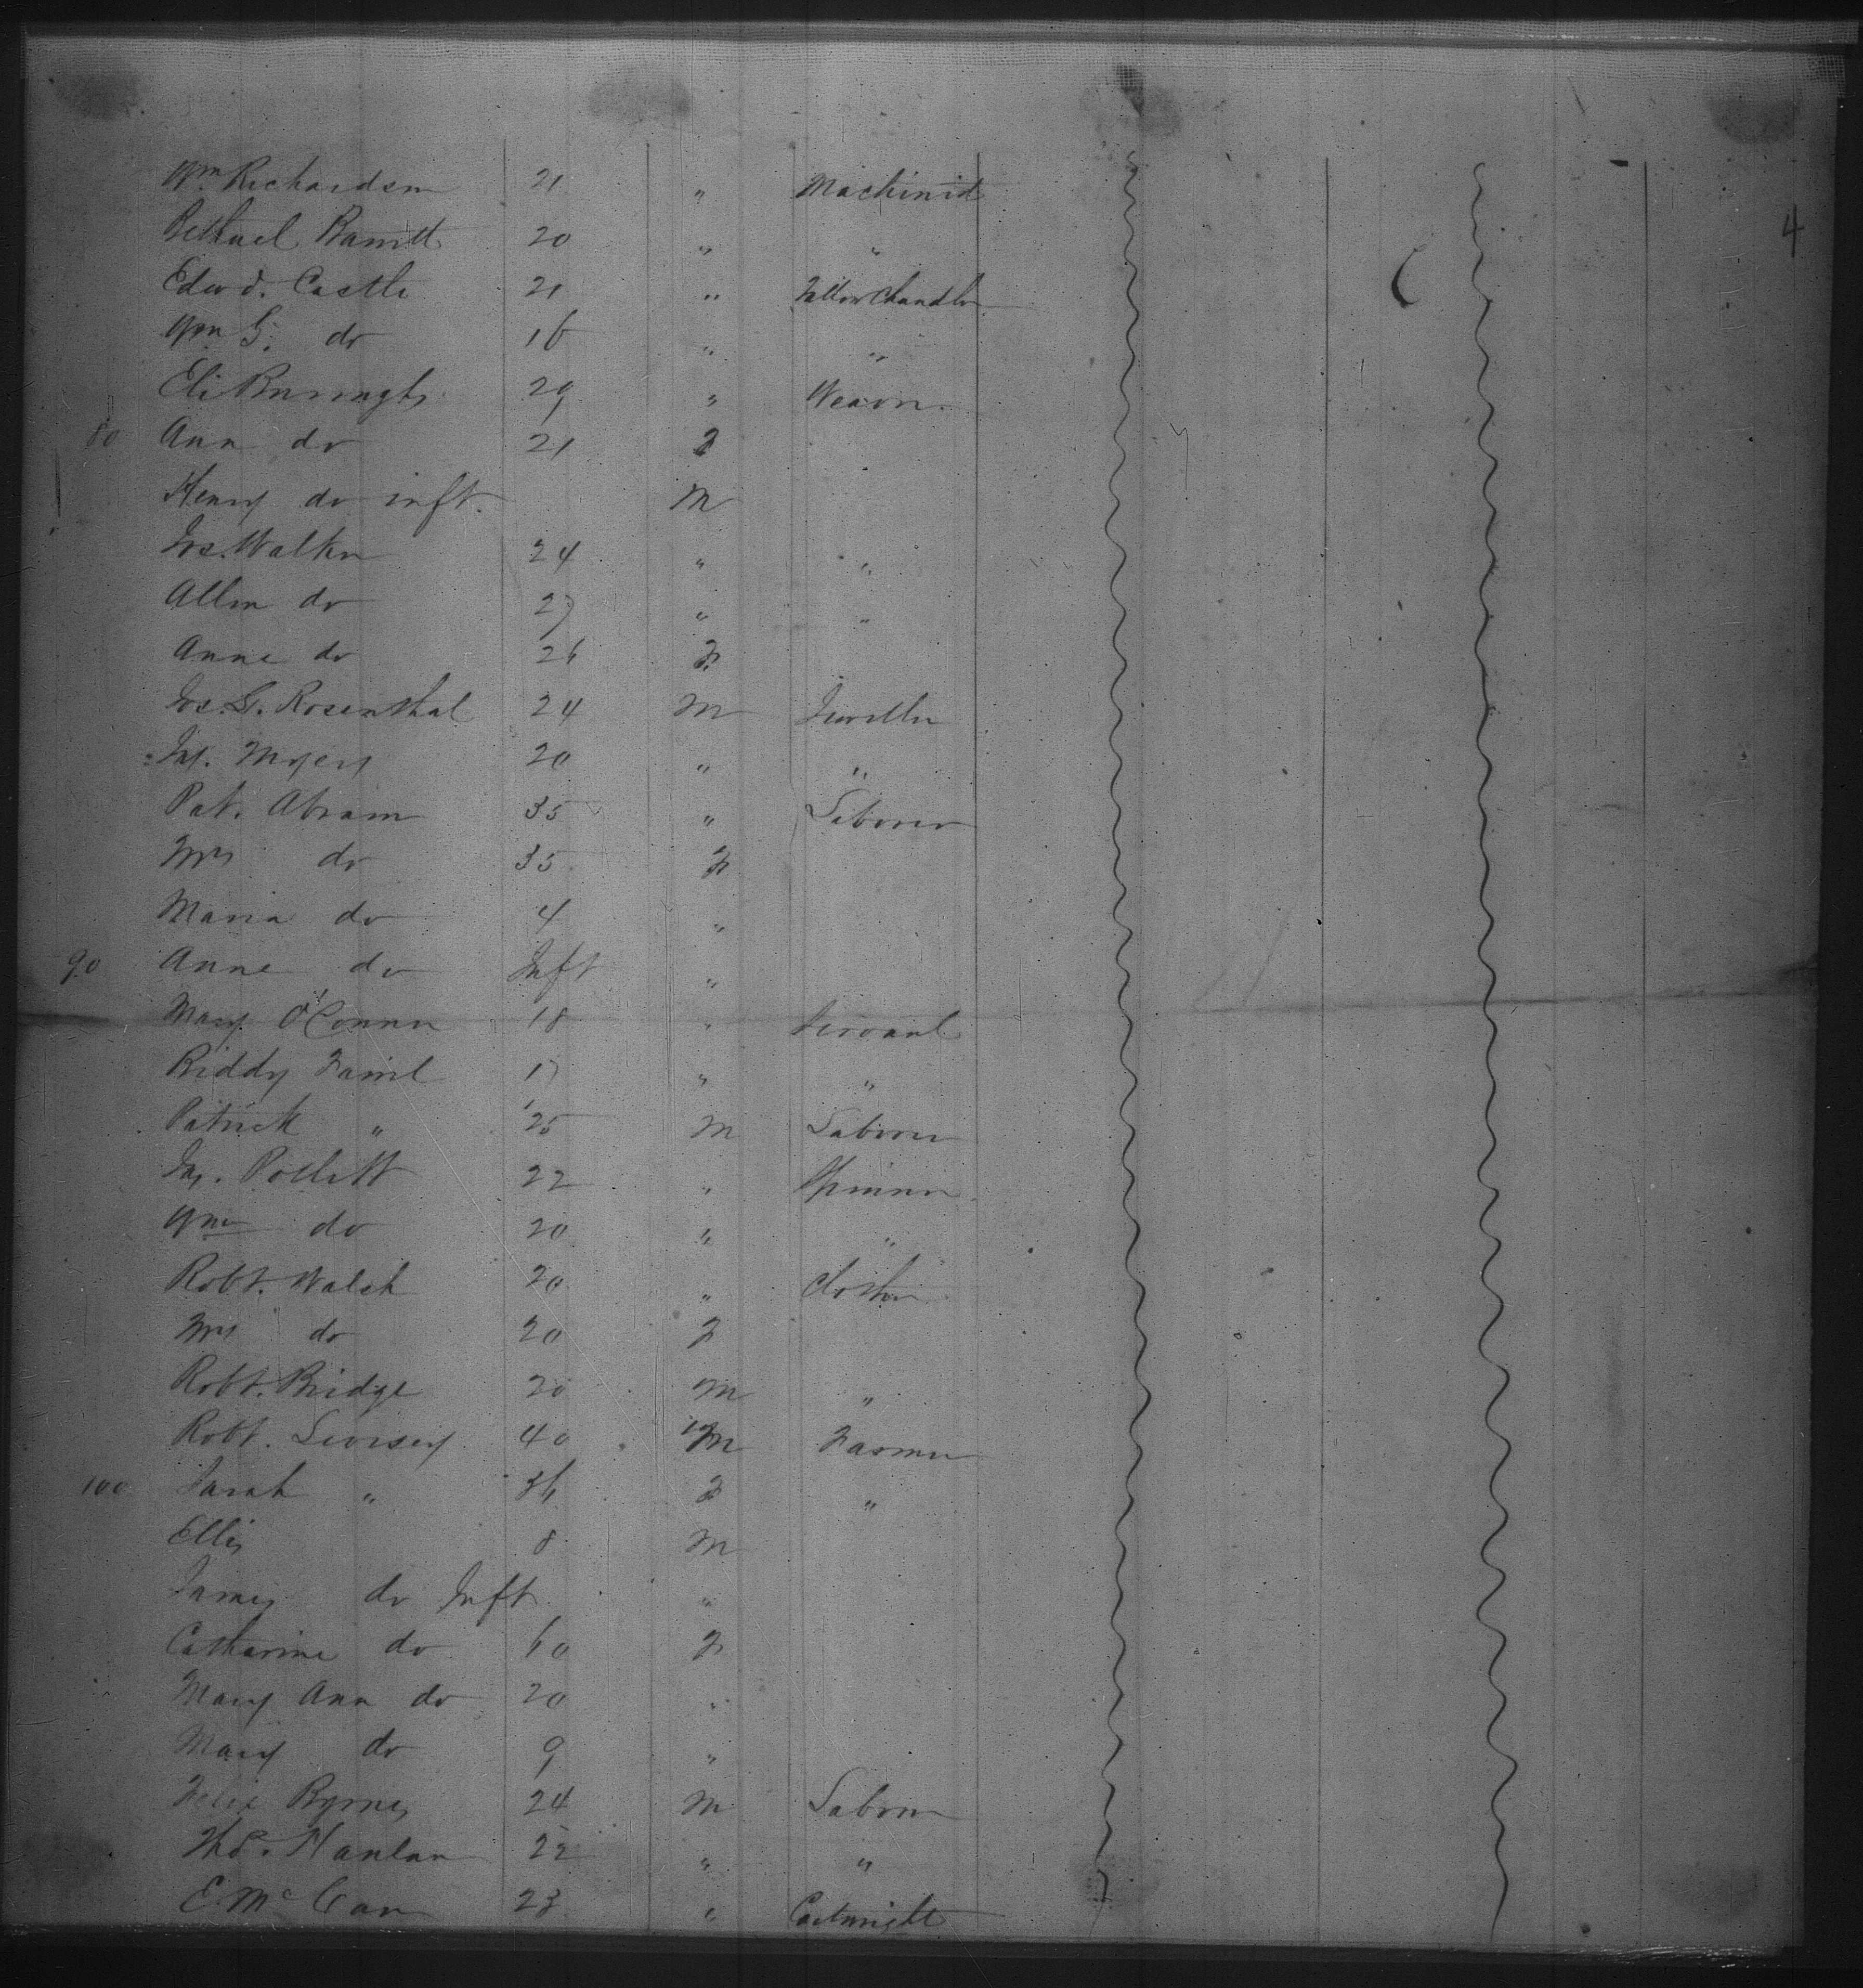 4
Wm Richardson 21 " Machinist
Bethuel Barritt 20 " "
Edwd. Castle 21 " Tallow Chandler
Wm G. do 16 " "
Eli Burroughs 29 " Weaver
80 Ann do 21 F
Henry do inft. M
Jos. Walker 24 " "
Allen do 27 " "
Anne do 26 F
Jos. G. Rosenthal 24 M Jeweller
Jas. Myers 20 " "
Pat. Abram 35 " Laborer
Mrs do 35 F
Maria do 4 "
90 Anne do Inft "
Mary O'Connor 18 " Servant
Biddy 17 " "
Patrick " 25 M Laborer
Jas. Pollitt 22 " Spinner
Wm do 20 " "
Robt. Walsh 20 "
Mrs do 20 F
Robt. Bridge 20 M "
Robt. Livisey 40 M Farmer
100 Sarah " 36 F "
Ellis 8 M
James do Inft "
Catharine do 60 F
Mary Ann do 20 "
Mary do 9 "
Felix Byrnes 24 M Laborer
Thos. Hanlan 22 " "
E. McCann 23 " Cartwright